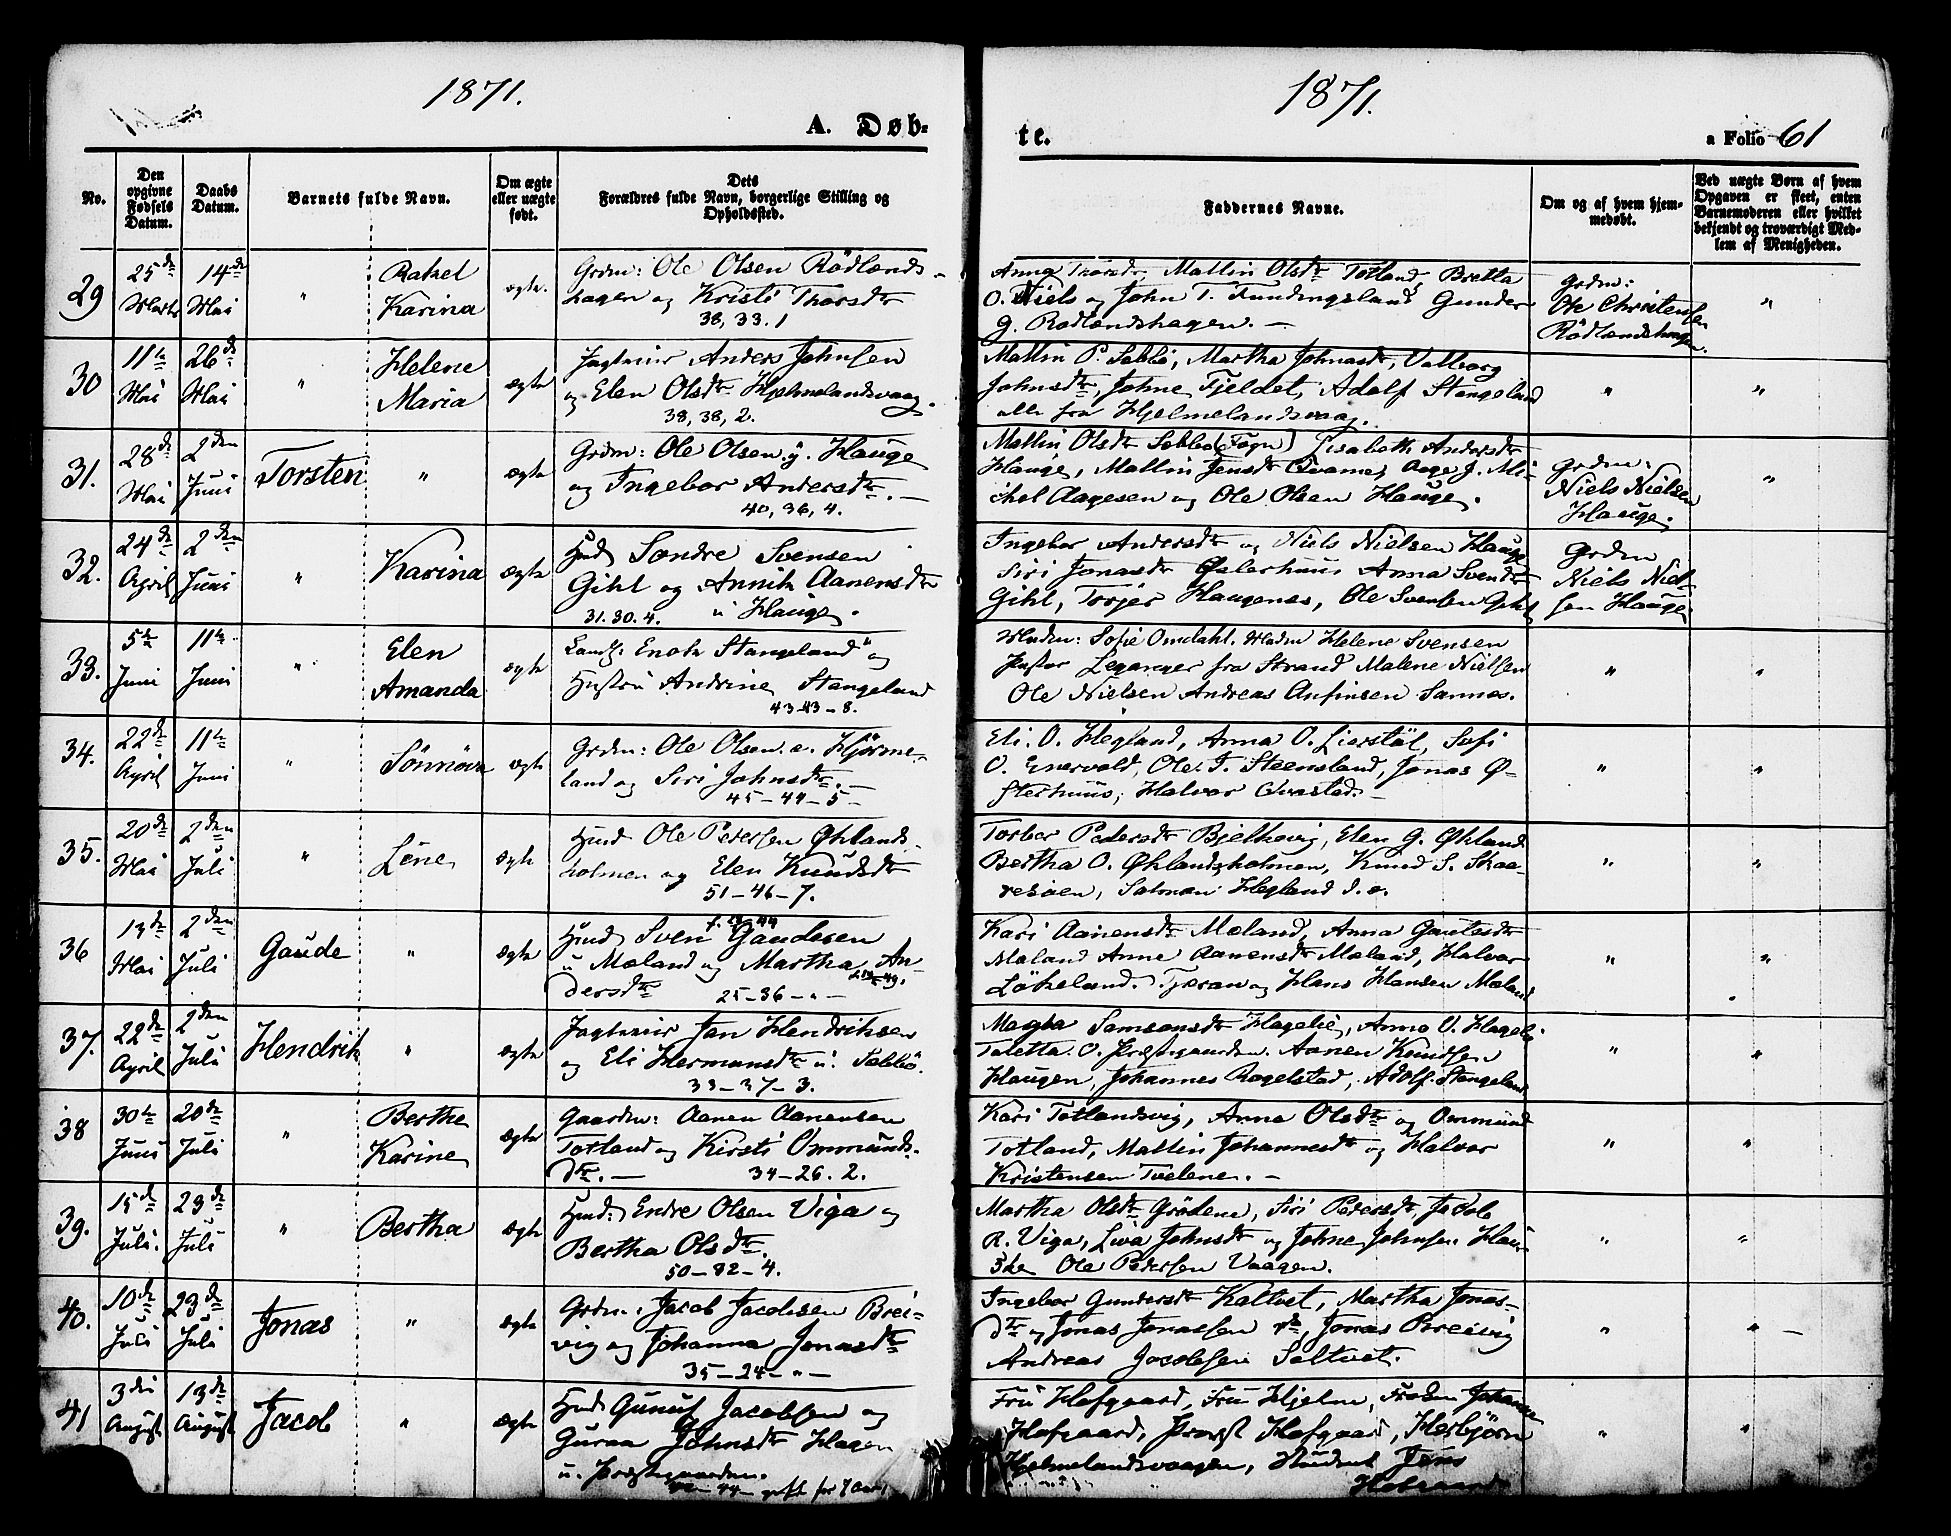 1871.
1871.
A. Døb-
te.
a Folio 61
No.
Den opgivne Fødsels Datum.
Daabs Datum.
Barnets fulde Navn.
Om ægte eller uægte født.
Dets Forældres fulde Navn, borgerlige Stilling og Opholdsted.
Faddernes Navne.
Om og af hvem hjemmedøbt.
Ved uægte Børn af hvem Opgaven er skeet, enten Barnemoderen eller hvilket bekjendt og troværdigt Medlem af Menigheden.
29 25de Marts 14de Mai " Rakel Karina ægte. Grdm: Ole Olsen Rödlands-
hagen og Kristi Thorsdtr
38, 33. 1
Anna Thorsdtr, Mallin Olsdtr Totland, Bretta
O. Niels og John T. Fundingsland Gunder
G. Rödlandshagen. —
Grdm: Ole Christensen Rödlandshagen. "
30 11te Mai 26de Mai " Helene Maria ægte Anders Johnsen
og Elen Olsdtr Hjelmelandsvaag.
38, 38, 2.
Mallin P. Sæbbö, Martha Johnasdtr, Valborg
Johnsdtr, Johne Fjeldet, Adolf Stangeland
alle fra Hjelmelandsvaag.
" "
31. 28de Mai 2den Juni Torsten " ægte Grdm: Ole Olsen y. Hauge
og Ingebor Andersdtr. —
40, 36, 4.
Mallin Olsdtr Sæbbö (Fogn) Lisabeth Andersdtr
Hauge, Mallin Jensdtr Qvame, Aage J. Mi-
chel Aagesen og Ole Olsen Hauge.
Grdm: Niels Nielsen Hauge. "
32. 24de April 2den Juni " Karina ægte Hmd Sondre Svensen
Gihl og Annik Aanensdtr
31. 30. 4. u Hauge.
Ingebor Andersdtr og Niels Nielsen Hauge
Siri Jonasdtr Østerhuus Anna Svendtr
Gihl, Torjer Haugenæs, Ole Svensen Gihl
Grdm Niels Nielsen Hauge "
33. 5te Juni 11te Juni " Elen Amanda ægte Enok Stangeland og
Hustru Andrine Stangeland
43-43-8.
Madm: Sofie Omdahl. Madm Helene Svensen
Pastor Leganger fra Strand Malene Nielsen
Ole Nielsen Andreas Anfinsen Sannes.
" "
34. 22de April 11te Juni " Sönnöva ægte Grdm: Ole Olsen. e. Hjörme-
land og Siri Johnsdtr. —
45-44-5-
Eli. O. Hegland, Anna O. Lierstöl, Sofi
O. Enervold, Ole. T. Steensland, Jonas Ø-
sterhuus, Halvor Qvastad. —
" "
35. 20de Mai 2den Juli " Lene ægte Hmd Ole Pedersen Øklands-
holmen og Elen Knudsdtr
51-46-7.
Torbor Pedersdtr Bjelkevig, Elen G. Økland
Bertha O. Øklandsholmen, Knud S. Skaa-
resöen, Salmon Hegland d. e.
" "
36 13de Mai 2den Juli Gaude " ægte Hmd Sven Gaudesen
u Mæland og Martha An-
dersdtr 25-36-"-
Kari Aanensdtr Mæland, Anna Gautesdtr
Mæland Anne Aanensdtr Mæland, Halvor
Lökeland. Tjeran og Hans Hansen Mæland
" "
37. 22de April 2den Juli Hendrik " ægte Jan Hendriksen
og Eli Hermansdtr u: Sæbbö.
33-37-3.
Magla Samsonsdtr Hagelie, Anna O. Hageli
Taletta. O. Præstegaarden. Aanen Knudsen
Haugen, Johannes Ragelstad, Adolf Stangeland
" "
38 30te Juni 20de Juli " Berthe Karine ægte Gaardm: Aanen Aanensen
Totland og Kirsti Ommunds-
dtr. — 34-26. 2.
Kari Totlandsvig, Anna Olsdtr og Ommund
Totland, Mallin Johannesdtr og Halvor
Kristensen Tvelene. —
" "
39. 15de Juli. 23de Juli " Bertha ægte Hmd: Endre Olsen Viga og
Bertha Olsdtr.
50-32-4.
Martha Olsdtr Grödem, Siri Pedersdtr, Jacob
R. Viga, Liva Johnsdtr og Johne Johnsen Hau-
ske Ole Pedersen Vaagen.
" "
40. 10de Juli 23de Juli Jonas " ægte Grdm: Jacob Jacobsen Brei-
vig og Johanna Jonasdtr
35-24-"-
Ingebor Gundersdtr Kaltvet, Martha Jonas-
dtr og Jonas Jonassen Jonas Breivig
Andreas Jacobsen Saltvet.
" " —
41 3die August 13de August Jacob " ægte Hmd Gunuf Jacobsen og
Guraa Johnsdtr Hagen
u. Præstegaarden.
44- gift for 7 Aar
Fru Hofgaard, Fru Hjelm, Frøken Johanne
Hofgaard, Provst Hofgaard, Herbjörn
Hjelmelandsvaagen, Student Jens
" "